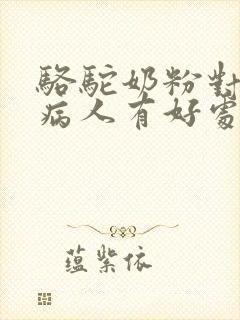 駱駝奶粉對
病人有好處
蘊紫依